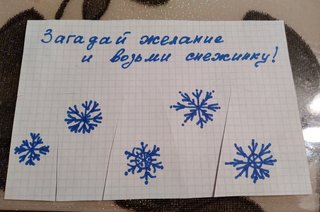 Загадай желание
и возьми снежинку!